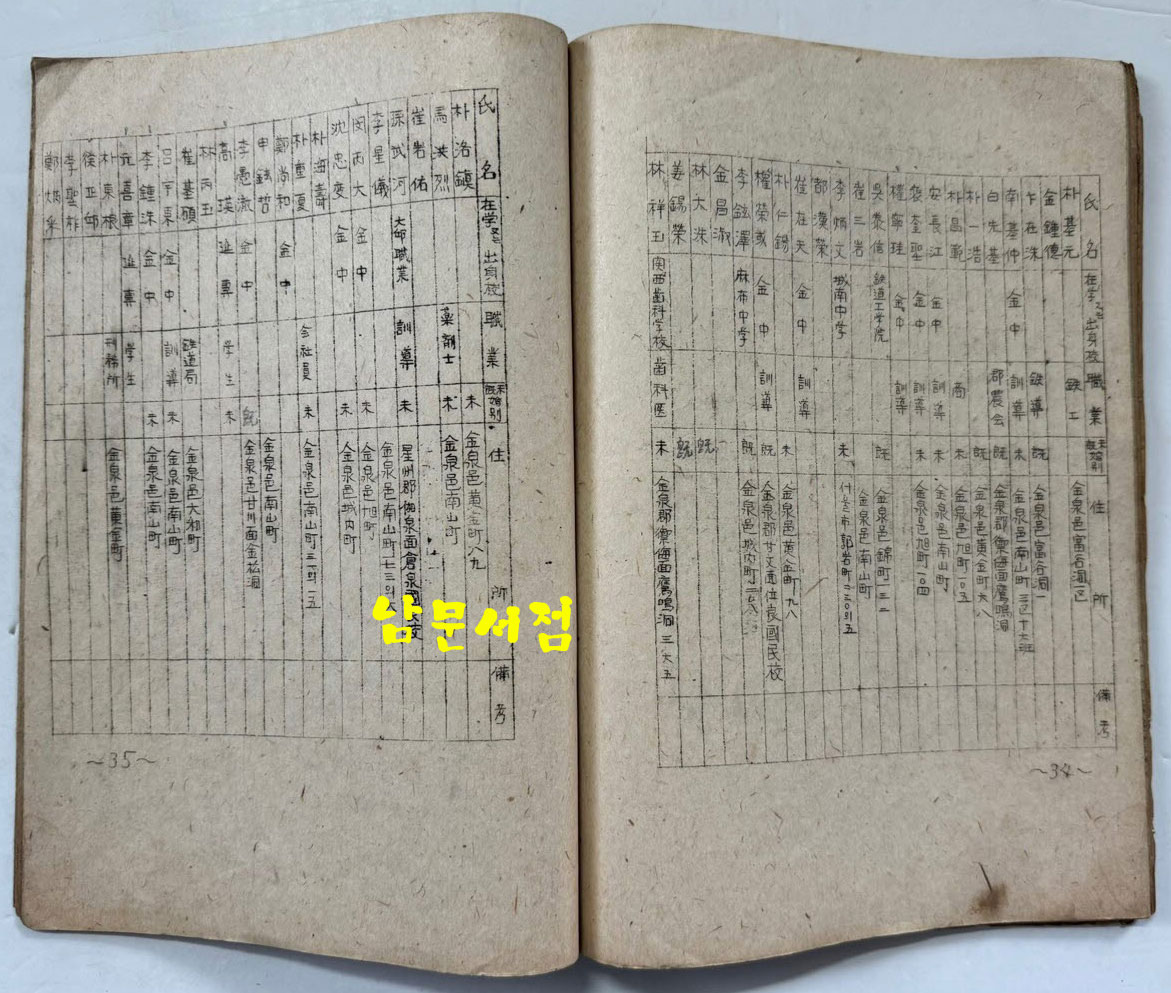 氏名 在学又는出身校 職業 未既婚別 住所 備考
朴基元 鉄工 金泉邑富谷洞区
金鍾德
卞在洙 鉄導 既 金泉邑富谷洞一
南基仲 金中 訓導 未 金泉邑南山町三区十六班
白先基 郡農会 既 金泉郡禦侮面鷹鳴洞
朴一浩 既 金泉邑黄金町六八
朴昌範 商 未 金泉邑旭町一〇五
安長江 金中 訓導 未 金泉邑南山町
裵奎聖 金中 訓導 未 金泉邑旭町一〇四
権寧珪 金中 訓導
吳泰信 鉄道工学院 既 金泉邑錦町一三二
崔三岩 金泉邑南山町
李炳文 城南中学 未 郭岩町
都漢榮
崔在夫 金中 訓導
朴仁錫 未 金泉邑黄金町九八
權榮或 金中 訓導 既 金泉郡甘文面位良國民校
李鉉澤 麻布中学 既 金泉邑城内町
金昌淑
林大洙 既
姜錫榮 既
林祥玉 関西歯科学校 歯科医 未 金泉郡禦侮面鷹鳴洞三六五
備考
~34~
氏名 在学又는出身校 職業 未既婚別 住所 備考
朴洛鎭 未 金泉邑黄金町八九
馬洪烈 薬剤士 未 金泉邑南山町
崔岩佑
孫武河 大邱職業 訓導 未 星州郡伽泉面倉泉國民校
李星儀 金泉邑南山町七三
閔丙大 金中 未 金泉邑旭町
沈忠燮 金中 未 金泉邑城内町
朴海壽
朴重夏 会社員 未 金泉邑南山町
鄭尚和 金中
申鉉哲 金泉邑南山町
李憲淑 金中 既 金泉邑甘川面金松洞
高瑛 延専 学生 未
林丙玉
崔基碩 鉄道局 金泉邑大郷町
呂宇東 金中 訓導 未 金泉邑南山町
李鍾洙 金中 未 金泉邑南山町
喜章 延専 学生
朴東根 刑務所 金泉邑黄金町
李聖祚
鄭炳
~35~
남문서점